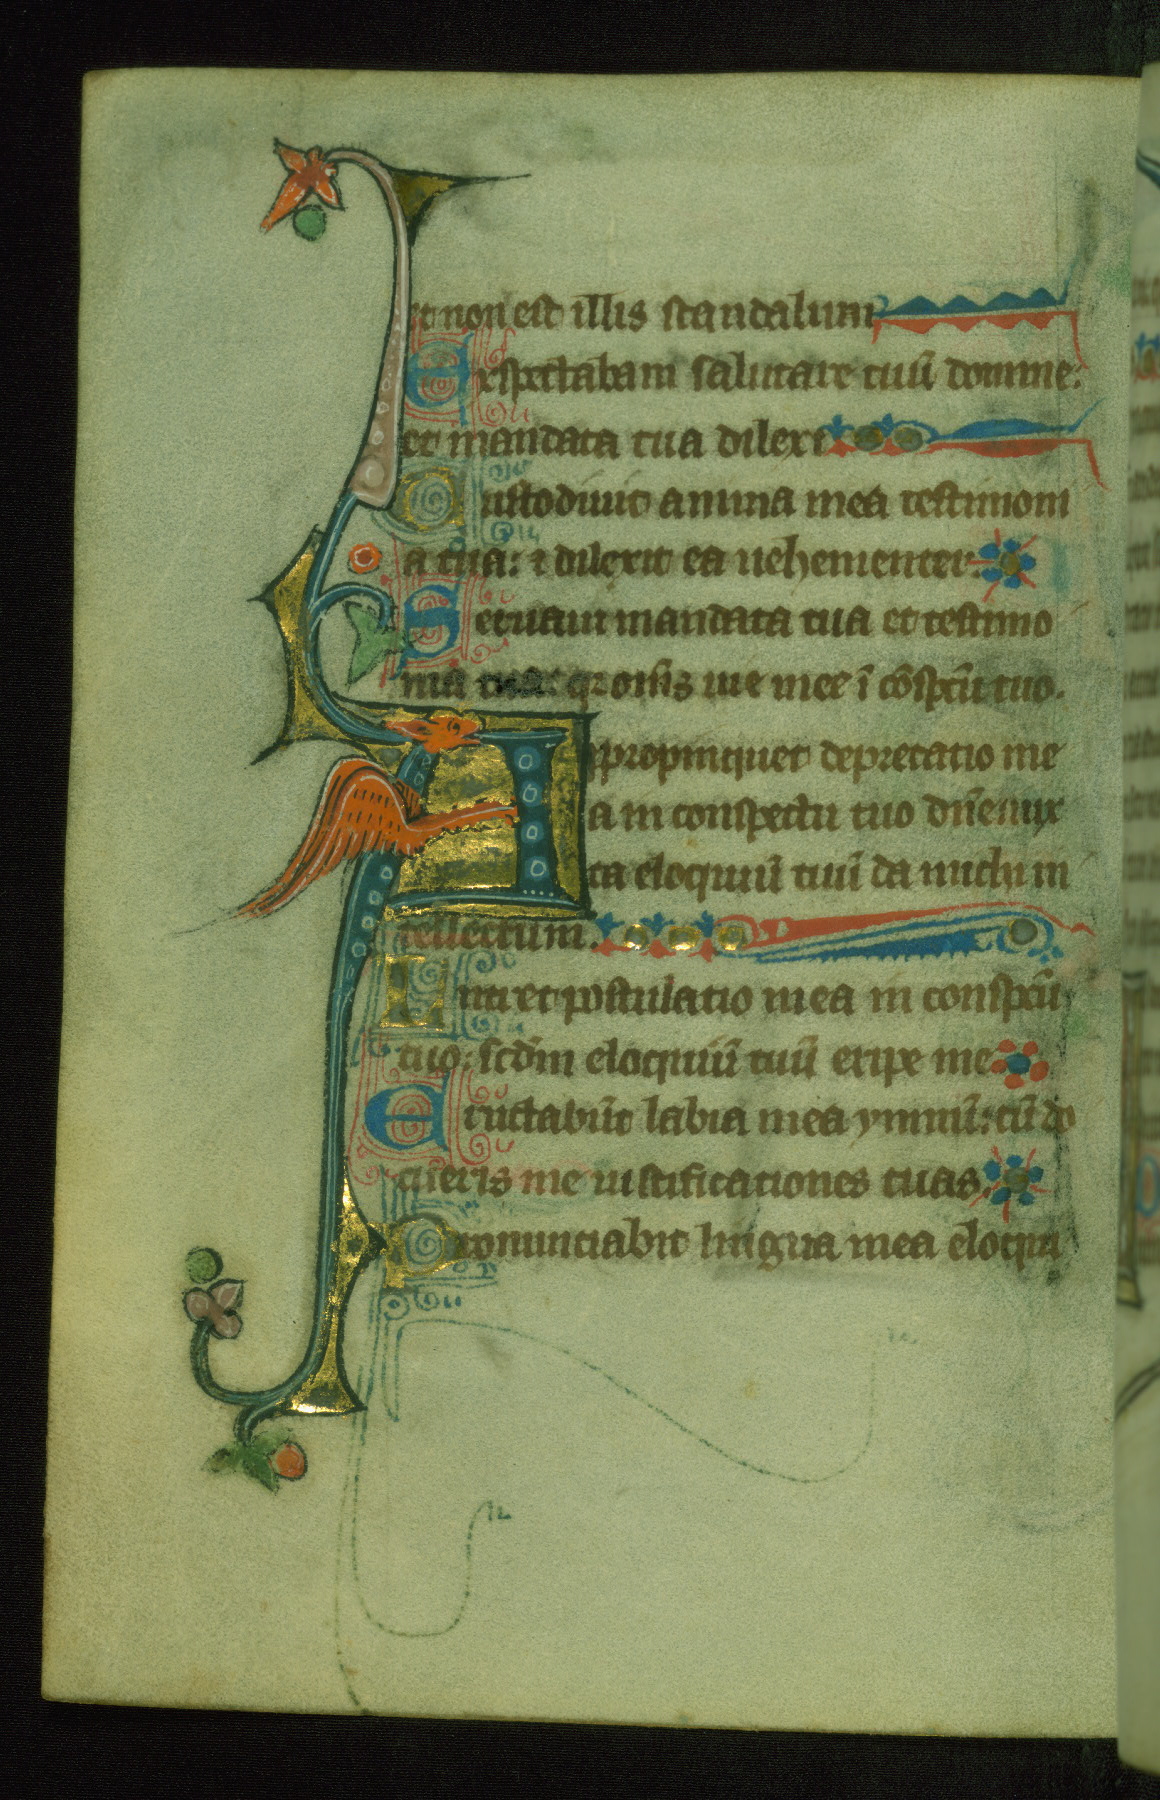 et non est illis scandalum
Expectabam salutare tuū domine:
et mandata tua dilexi
Custodiuit anima mea testimoni
a tua: ⁊ dilexit ea uehementer.
Seruaui mandata tua et testimo
nia tua: qr om̄s uie mee ī cōspcū tuo.
Appropinquet deprecatio me
a in conspectu tuo dn̄e iux
ta eloquiū tuū da michi in
tellectum.
Intret postulatio mea in conspcū
tuo: scdm̄ eloquiū tuū eripe me
Eructabūt labia mea ymnū: cū do
cueris me iustificationes tuas.
Pronunciabit lingua mea eloqui